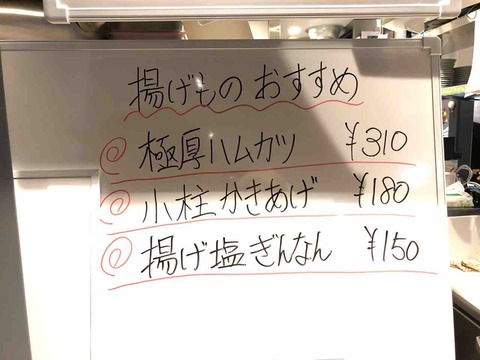 揚げもの おすすめ
極厚ハムカツ ¥310
小柱かきあげ ¥180
揚げ塩ぎんなん ¥150